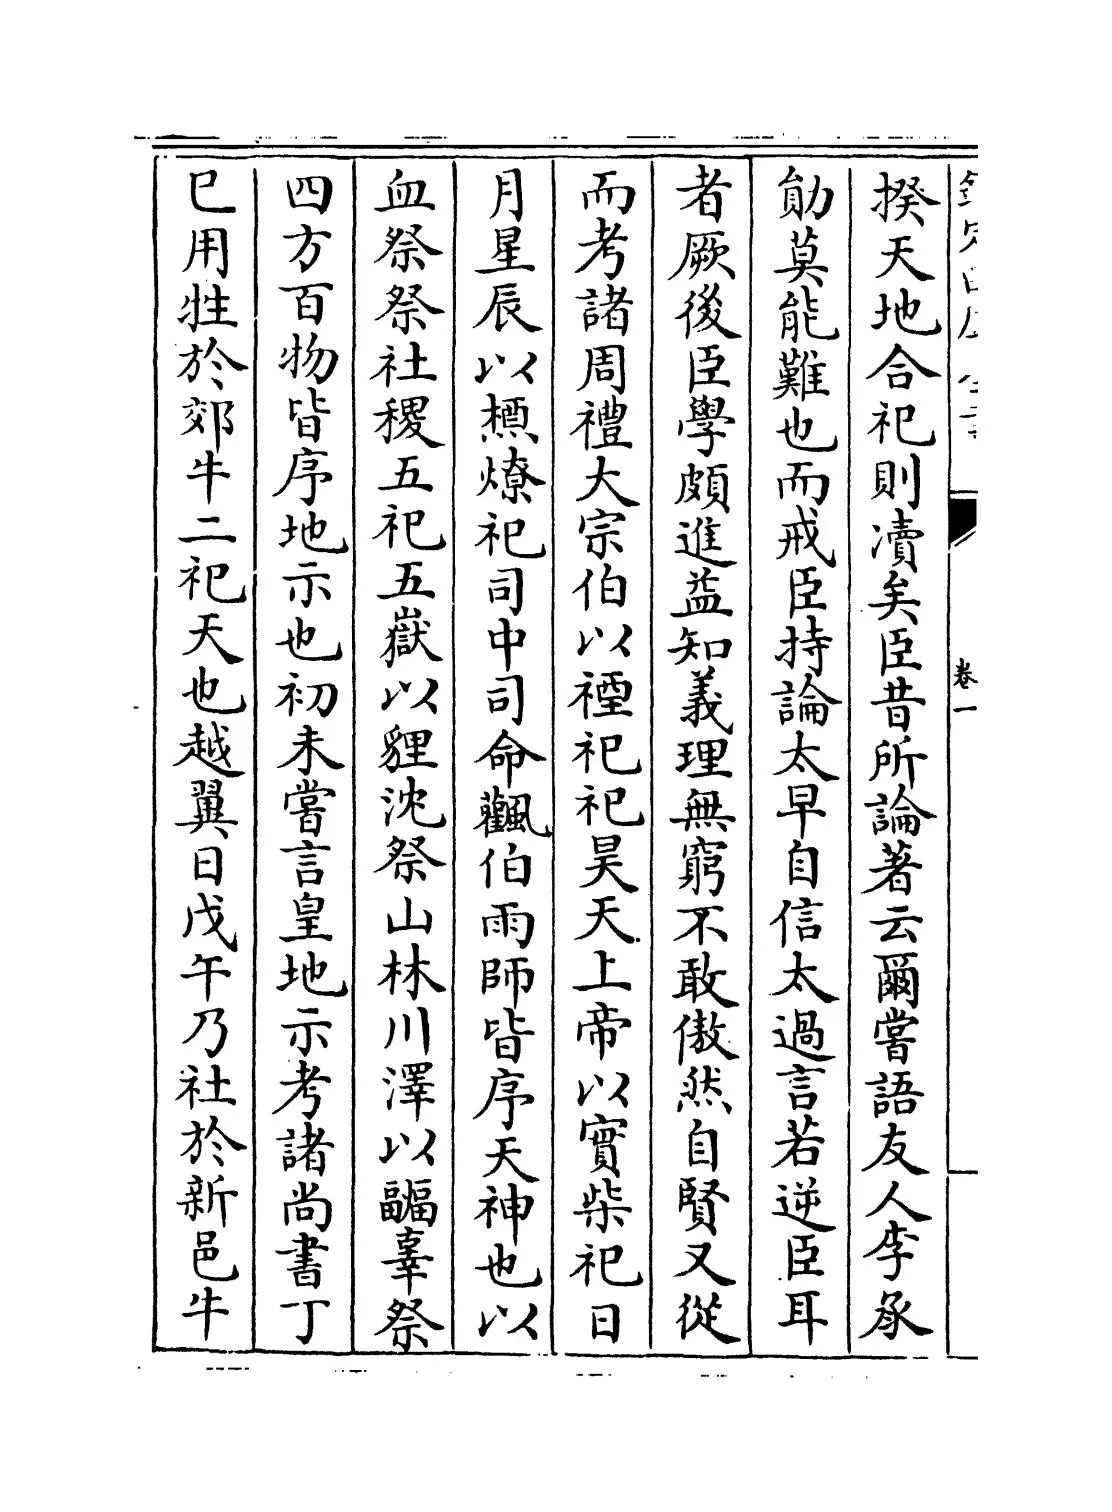 揆天地合祀則凟矣臣昔所論著云爾嘗語友人李承
勛莫能難也而戒臣持論太早自信太過言若逆臣耳
者厥後臣學頗進益知義理無窮不敢傲然自賢又從
而考諸周禮大宗伯以禋祀祀昊天上帝以實柴祀日
月星辰以槱燎祀司中司命飌伯雨師皆序天神也以
血祭祭社稷五祀五嶽以貍沈祭山林川澤以疈辜祭
四方百物皆序地示也初未嘗言皇地示考諸尚書丁
巳用牲於郊牛二祀天也越翼日戊午乃社於新邑牛
卷一